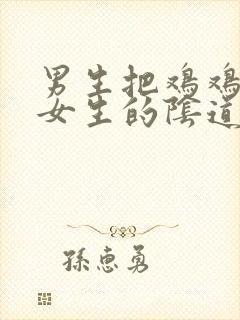 男生把鸡鸡
女生的陰道
孫惠勇